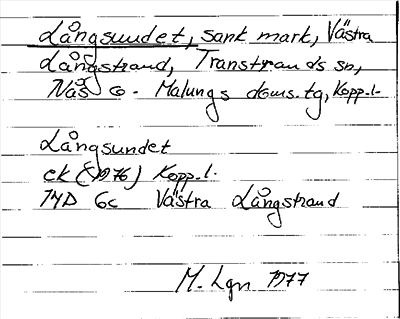 Långsundet, sank mark, Västra
Långstrand, Transtrands sn,
Nås o. Malungs doms.tg, Kopp.l.
Långsundet
ek (1976) Kopp.l.
14D 6c Västra Långstrand
M. Lgn 1977